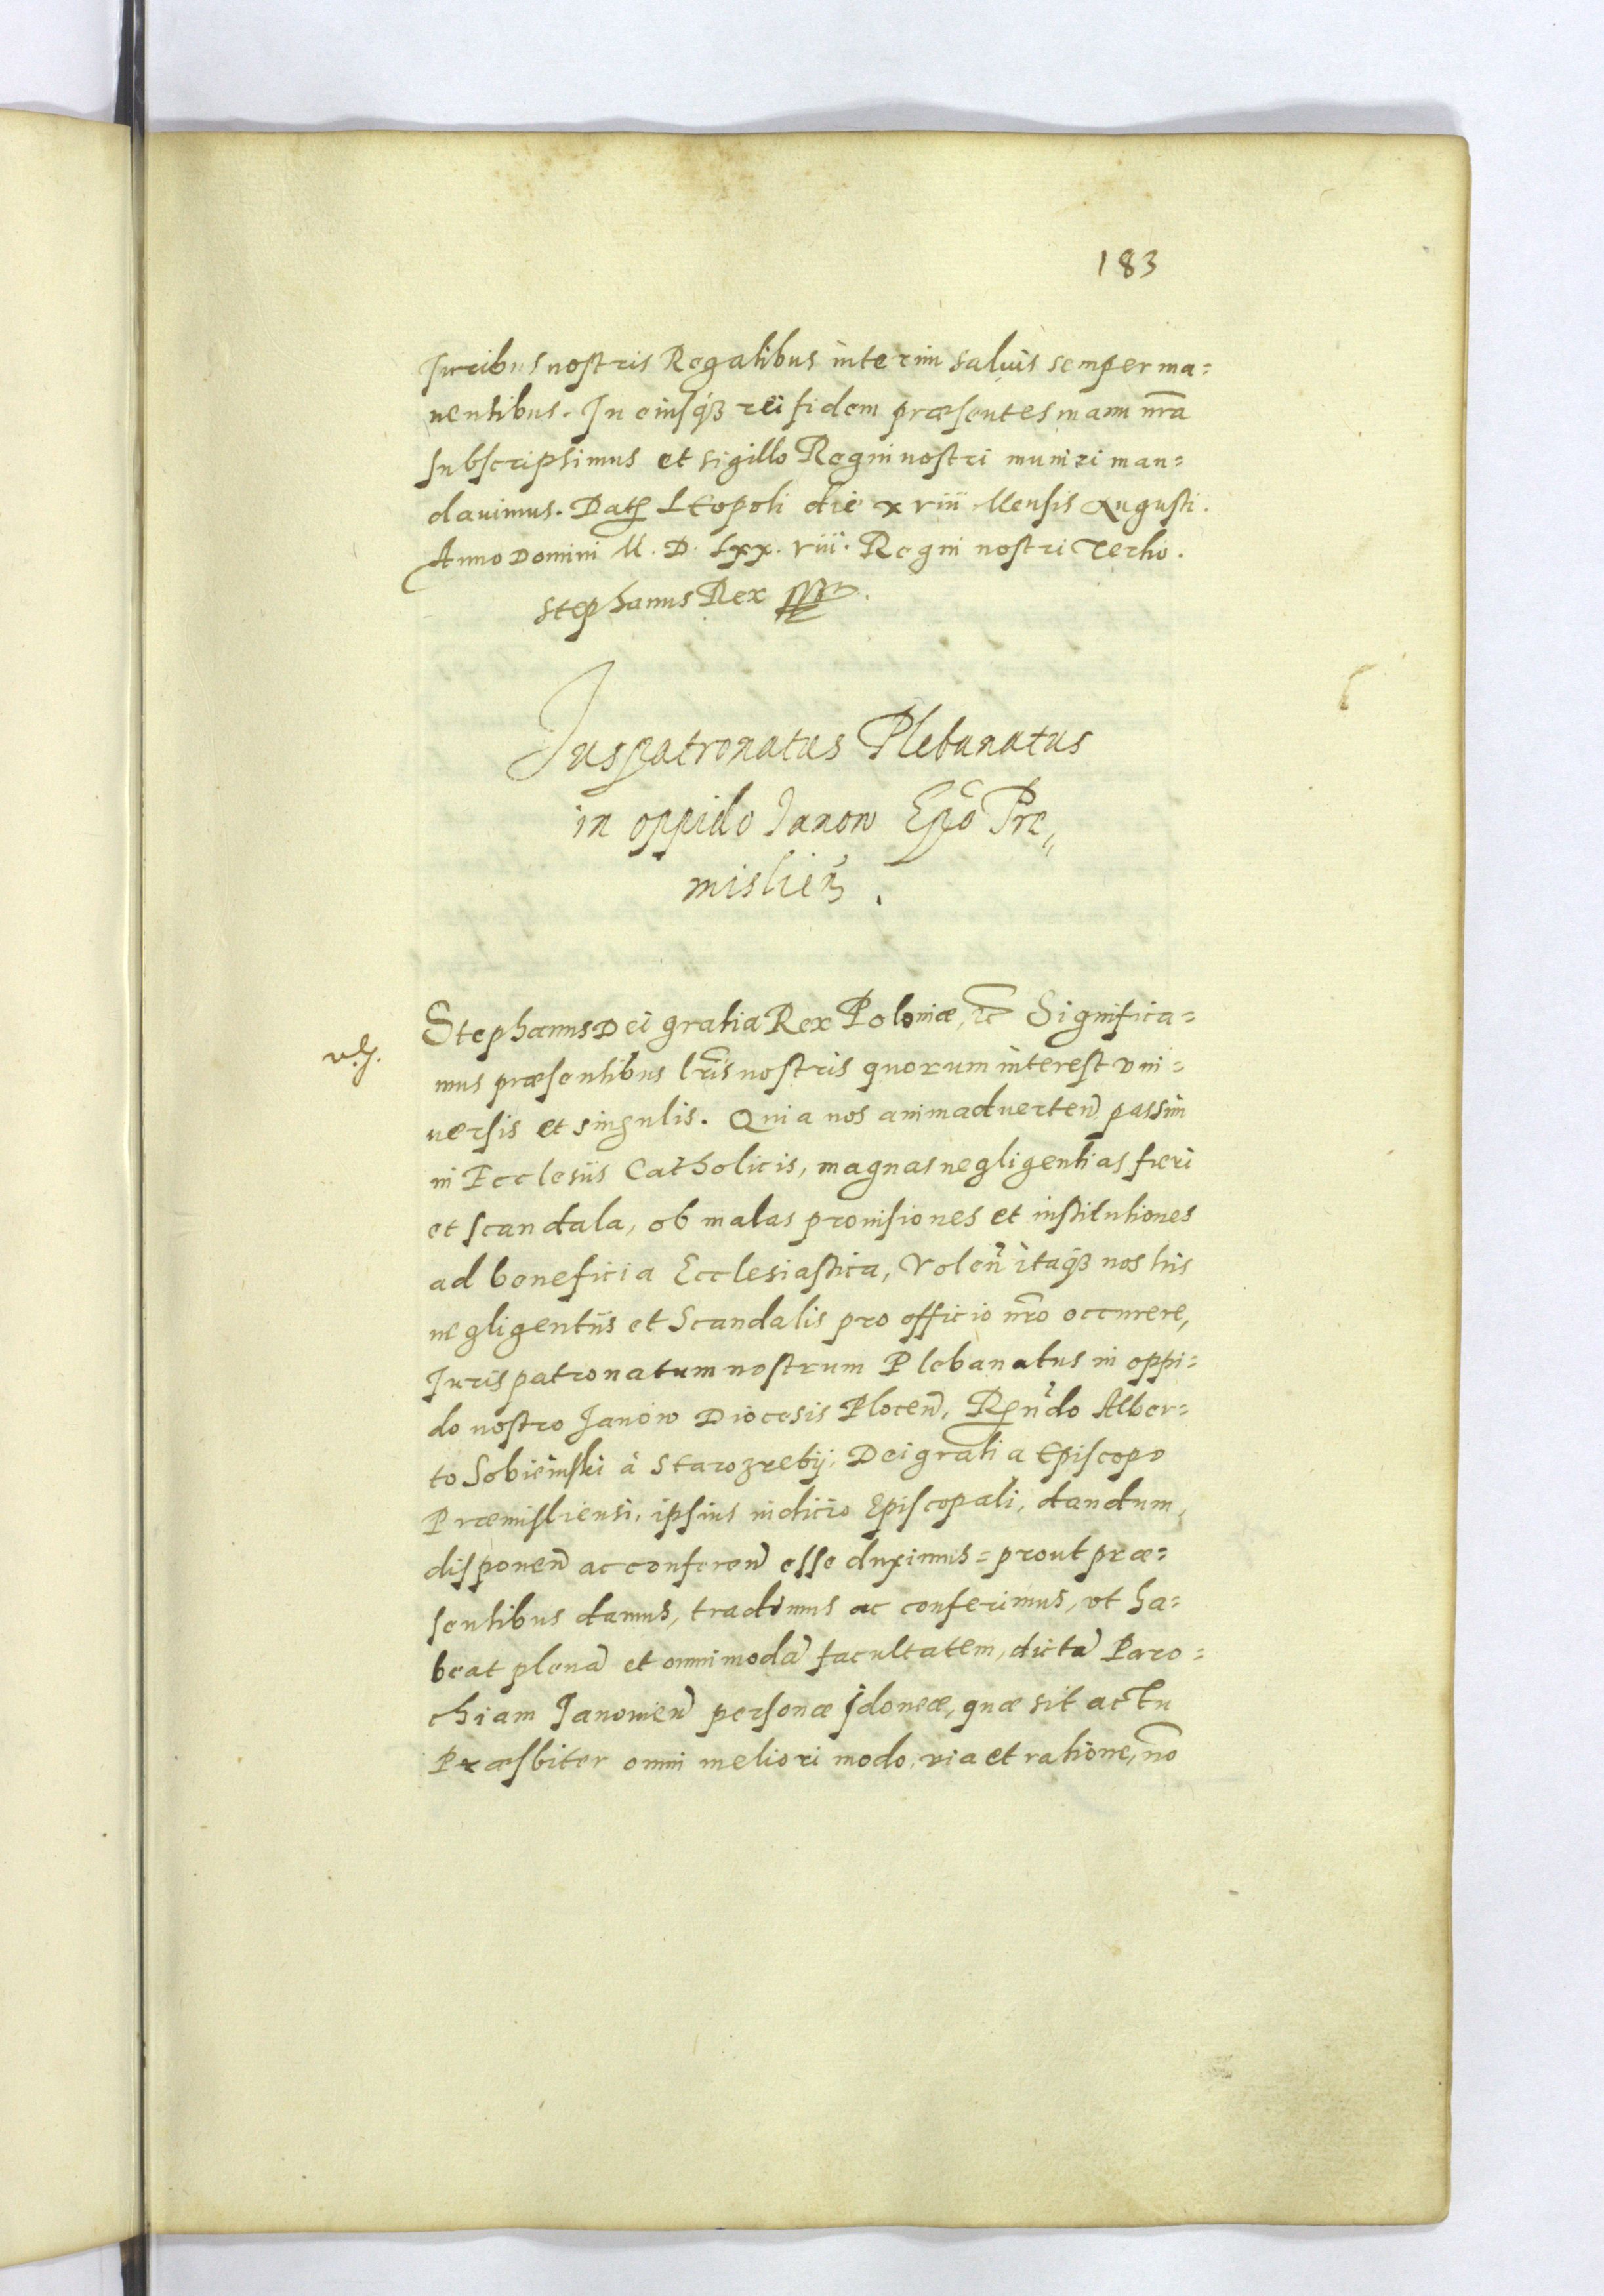 183
Juribus nostris Regalibus interim saluis semper ma=
nentibus. In eiusq꜄ rei fidem præsentes manu nr̃a
subscripsimus et sigillo Regni nostri muniri man=
dauimus. Dat Leopoli die xviii Mensis Augusti.
Anno Domini M. D. Lxx. viii. Regni nostri Tertio.
Stephanus Rex
Juspatronatus Plebanatus
in oppido Janow Ep̃o Pre„
mislien̄.
Stephanus Dei gratia Rex Poloniæ, etc Significa=
mus præsentibus lr̃is nostris quorum interest vni=
uersis et singulis. Quia nos animaduerten̄ passim
in Ecclesiis Catholicis, magnas negligentias fieri
et scandala, ob malas prouisiones et institutiones
ad beneficia Ecclesiastica, Volen̄ itaq꜄ nos his
negligentiis et Scandalis pro officio nr̃o occurere,
Jurispatronatum nostrum Plebanatus in oppi=
do nostro Janów Diocesis Plocen̄, Rn̄do Alber=
to Sobieiuski à Starozreby, Dei gratia Episcopo
Præmisliensi, ipsius iudicio Episcopali, dandum,
disponen̄ ac conferen̄ esse duximus = prout præ=
sentibus damus, tradimus ac conferimus, vt ha=
beat plenā et omnimodā facultatem, dictā Paro=
chiam Janouien̄ personæ Jdoneæ, quæ sit actu
Præsbiter omni meliori modo, via et ratione, nō